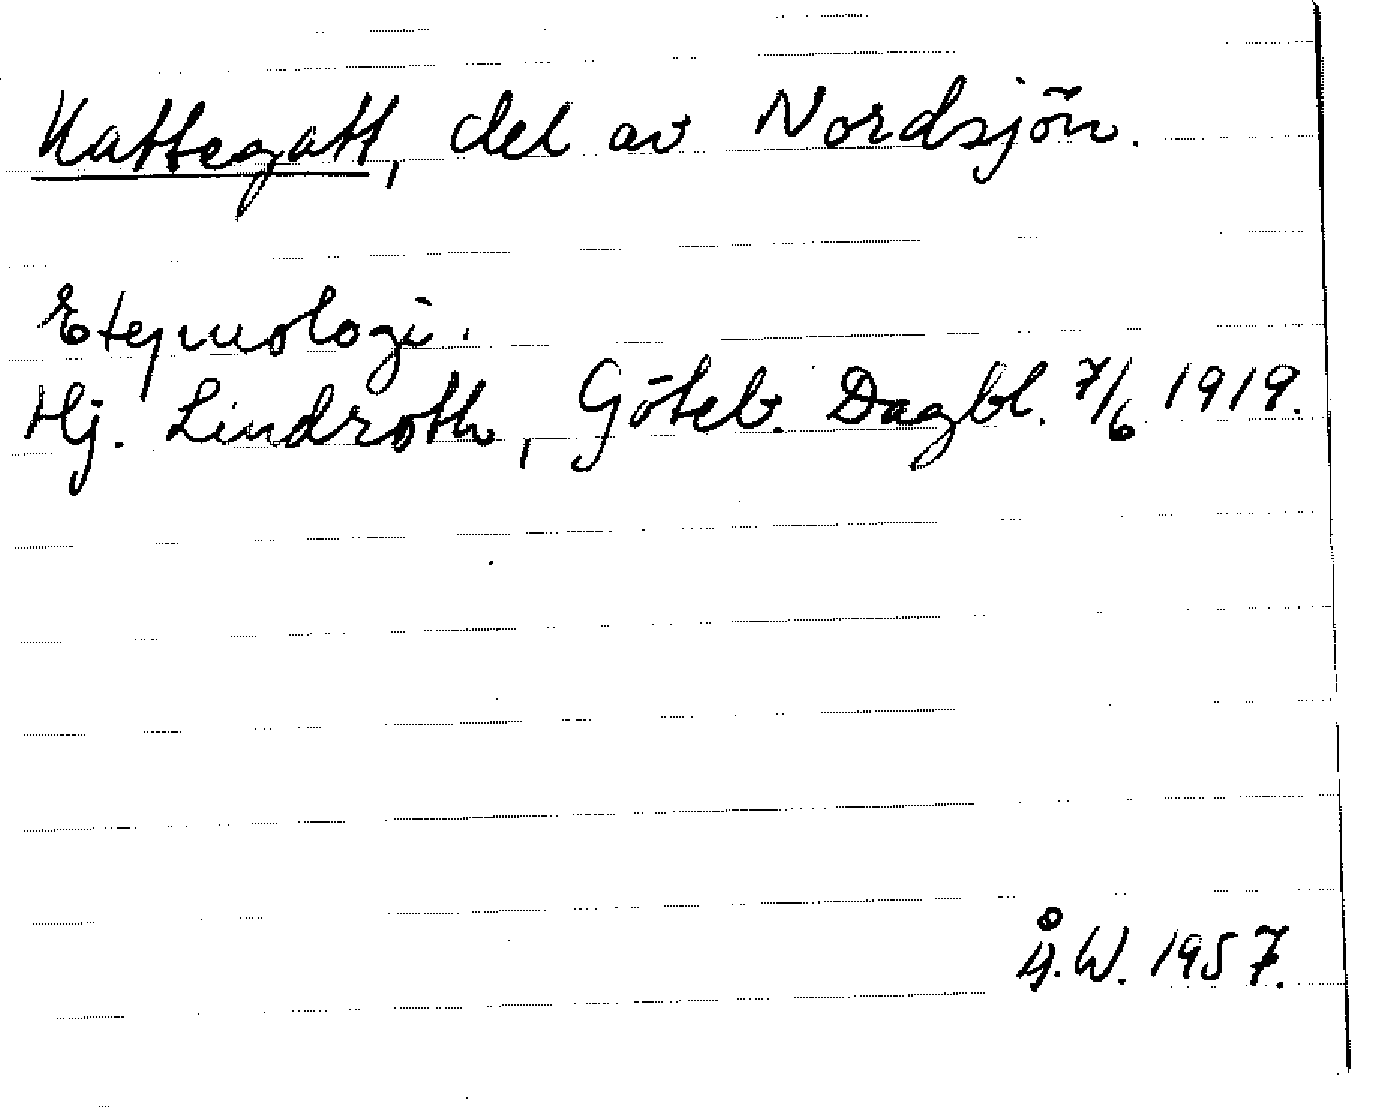 Kattegatt, del av Nordsjön.
Etymologi.
Hj. Lindroth, Göteb. Dagbl. 7/6 1919.
Å.W. 1957.